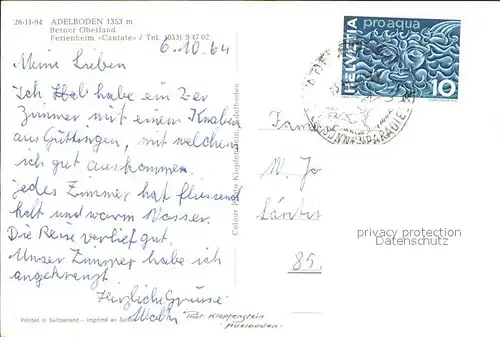 28-11-94 ADELBODEN 1353 m
Berner Oberland
Ferienheim «Cantate» / Tel. (033) 9 47 02
6.10.64
HELVETIA
pro aqua
10
Meine Lieben
Ich habe ein 2-er
Zimmer mit einem Knaben
aus Güttingen, mit welchem
ich gut auskomme.
Jedes Zimmer hat fliessend
kalt und warm Wasser.
Die Reise verlief gut.
Unser Zimmer habe ich
angekreuzt.
Herzliche Grüsse
Colour Photo Klopfenstein, Adelboden
Fam
W. Jo
85
privacy protection
Datenschutz
Printed in Switzerland - Imprimé en Suisse
Phot. Klopfenstein
Adelboden.